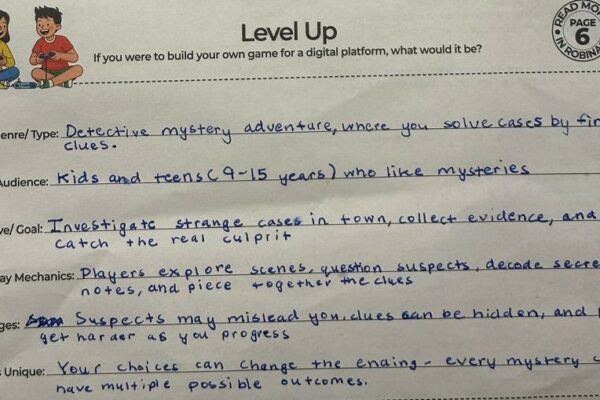 Level Up
READ MO
PAGE
6
IN ROBINA
If you were to build your own game for a digital platform, what would it be?
enre/Type: Detective mystery adventure, where you solve cases by fin
clues.
Audience: Kids and teens (9-15 years) who like mysteries
ve/Goal: Investigate strange cases in town, collect evidence, and
catch the real culprit
ay Mechanics: Players explore scenes, question suspects, decode secre
notes, and piece together the clues
ges: Suspects may mislead you, clues can be hidden, and
get harder as you progress
s Unique: Your choices can change the ending - every mystery c
have multiple possible outcomes.